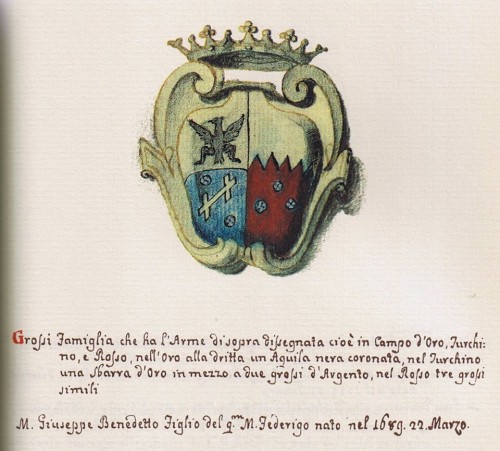 Grossi Famiglia che ha l'Arme di sopra disegnata cioè in Campo d'Oro, Turchi:
no, e Rosso, nell'Oro alla dritta un Aquila nera coronata, nel Turchino
una sbarra d'Oro in mezzo a due grossi d'Argento, nel Rosso tre grossi
simili
M. Giuseppe Benedetto Figlio del q.m M. Federigo nato nel 1689. 22. Marzo.